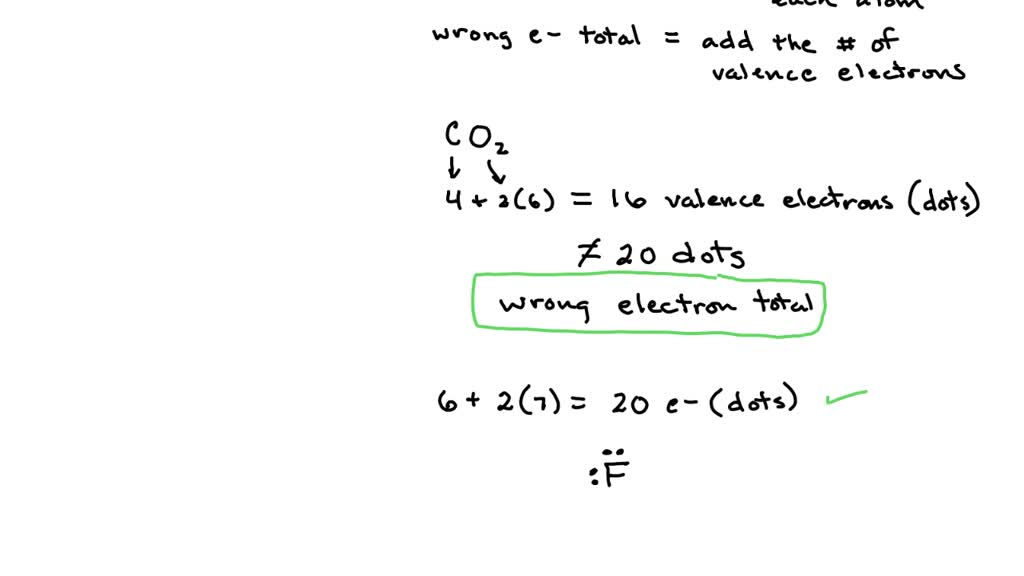 each atom
wrong e- total = add the # of
valence electrons
CO₂
↓ ↘
4 + 2(6) = 16 valence electrons (dots)
≠ 20 dots
wrong electron total
6 + 2(7) = 20 e- (dots) ✓
:F̈